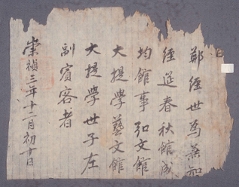 鄭經世爲兼知
經筵春秋館成
均館事弘文館
大提學藝文館
大提學世子左
副賓客者
崇禎三年十二月初十日